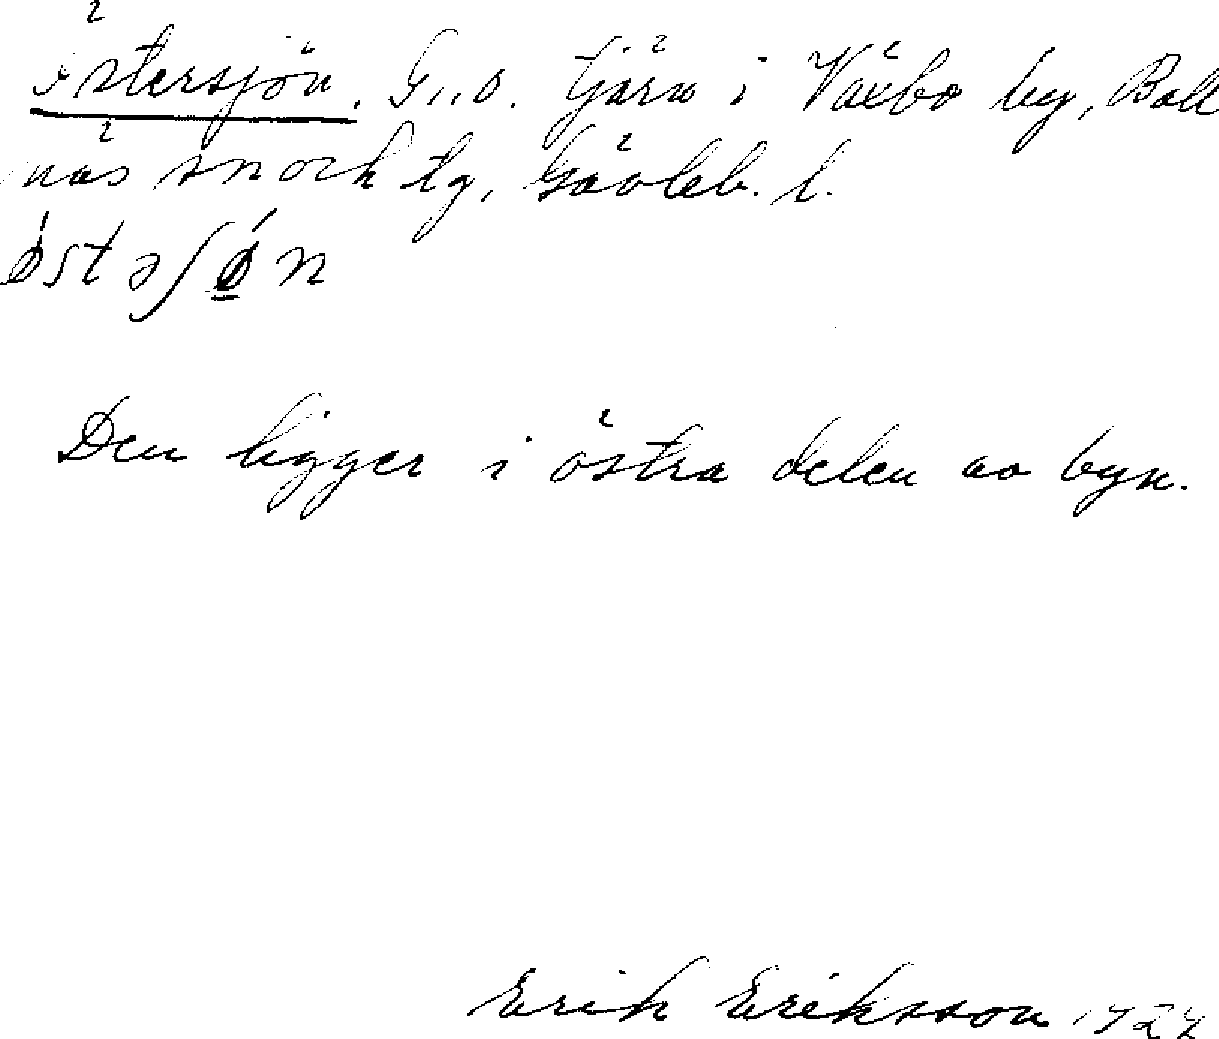 Östersjön. G. o. tjärn i Växbo by, Boll
näs sn och tg, Gävleb. l.
Den ligger i östra delen av byn.
Erik Eriksson 1924